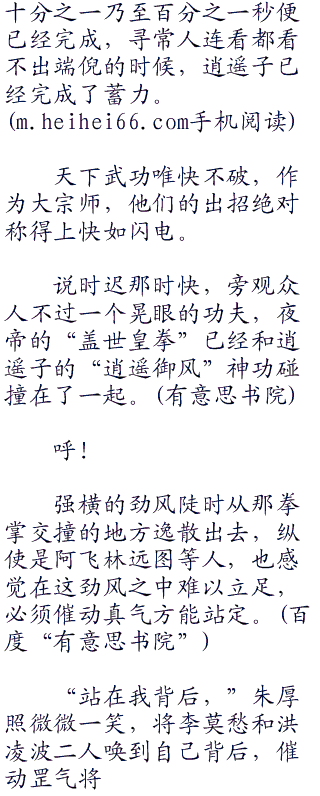 十分之一乃至百分之一秒便
已经完成，寻常人连看都看
不出端倪的时候，逍遥子已
经完成了蓄力。
(m.heihei66.com手机阅读)
天下武功唯快不破，作
为大宗师，他们的出招绝对
称得上快如闪电。
说时迟那时快，旁观众
人不过一个晃眼的功夫，夜
帝的“盖世皇拳”已经和逍
遥子的“逍遥御风”神功碰
撞在了一起。(有意思书院)
呼！
强横的劲风陡时从那拳
掌交撞的地方逸散出去，纵
使是阿飞林远图等人，也感
觉在这劲风之中难以立足，
必须催动真气方能站定。(百
度“有意思书院”)
“站在我背后，”朱厚
照微微一笑，将李莫愁和洪
凌波二人唤到自己背后，催
动罡气将